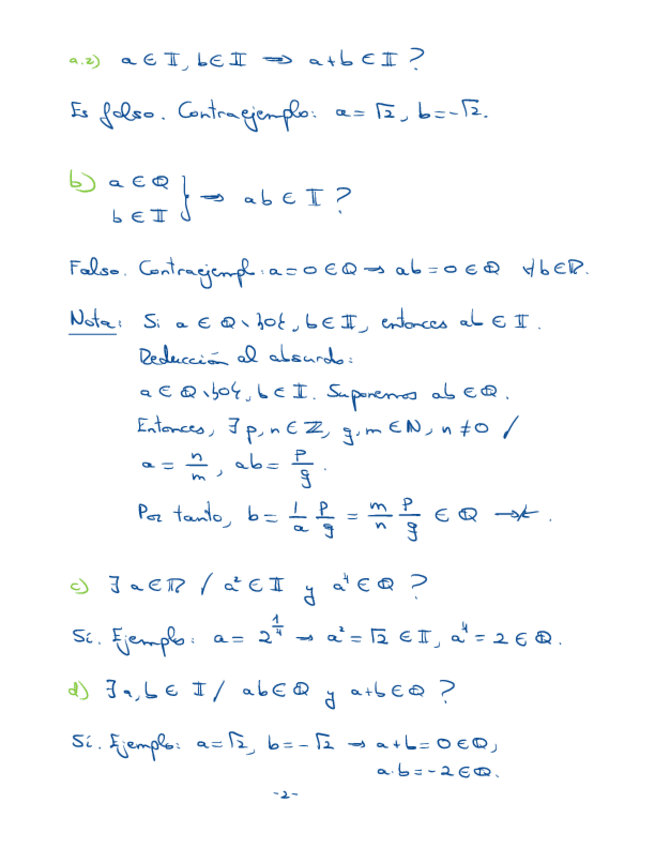 a.2) a ∈ 𝕀, b ∈ 𝕀 ⟹ a+b ∈ 𝕀 ?
Es falso. Contraejemplo: a = √2, b = -√2.
b) a ∈ ℚ
b ∈ 𝕀 } ⟹ ab ∈ 𝕀 ?
Falso. Contraejempl: a = 0 ∈ ℚ → ab = 0 ∈ ℚ ∀b ∈ ℝ.
Nota: Si a ∈ ℚ∖{0}, b ∈ 𝕀, entonces ab ∈ 𝕀.
Reducción al absurdo:
a ∈ ℚ∖{0}, b ∈ 𝕀. Suponemos ab ∈ ℚ.
Entonces, ∃ p, n ∈ ℤ, q, m ∈ ℕ, n ≠ 0 /
a = n/m, ab = p/q.
Por tanto, b = 1/a p/q = m/n p/q ∈ ℚ →←.
c) ∃ a ∈ ℝ / a² ∈ 𝕀 y a⁴ ∈ ℚ ?
Sí. Ejemplo: a = 2^(1/4) → a² = √2 ∈ 𝕀, a⁴ = 2 ∈ ℚ.
d) ∃ a, b ∈ 𝕀 / ab ∈ ℚ y a+b ∈ ℚ ?
Sí. Ejemplo: a = √2, b = -√2 → a+b = 0 ∈ ℚ,
a·b = -2 ∈ ℚ.
-2-